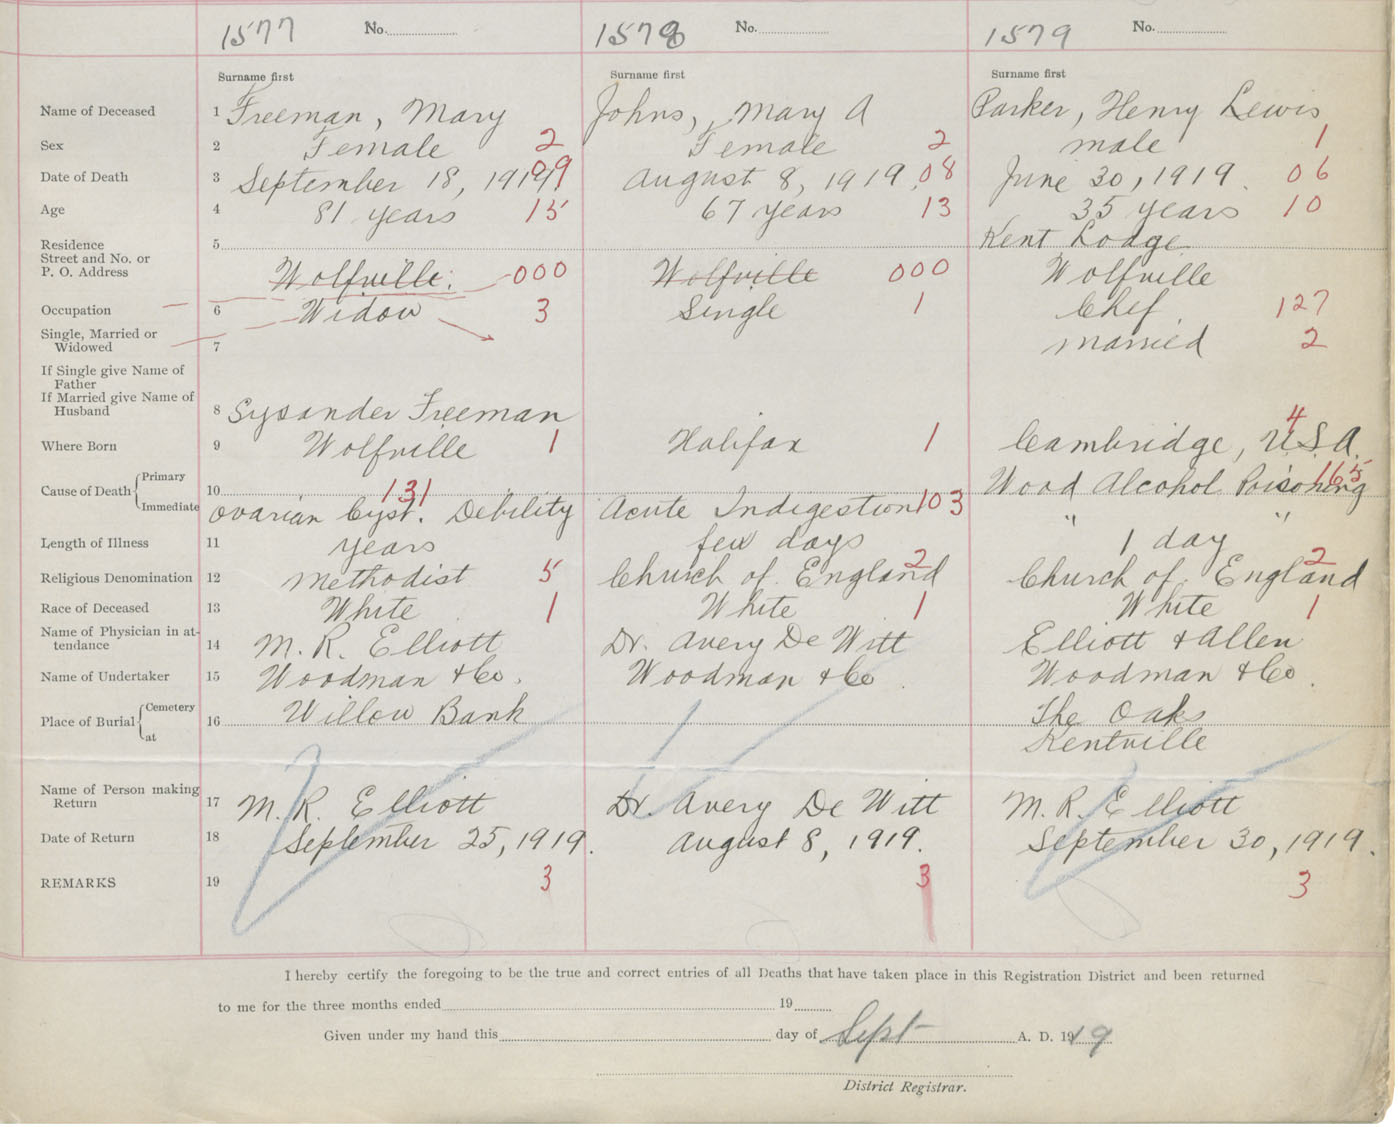 1577 No. 1578 No. 1579 No.
Surname first Surname first Surname first
Name of Deceased 1 Freeman, Mary Johns, Mary A Parker, Henry Lewis
Sex 2 Female 2 Female 2 male 1
Date of Death 3 September 18, 1919 09 August 8, 1919. 08 June 30, 1919. 06
Age 4 81 years 15 67 years 13 35 years 10
Residence 5 Kent Lodge
Street and No. or
P. O. Address Wolfville. 000 Wolfville 000 Wolfville
Occupation 6 Widow 3 Single 1 Chef 127
Single, Married or
Widowed 7 married 2
If Single give Name of
Father
If Married give Name of
Husband 8 Lysander Freeman
Where Born 9 Wolfville 1 Halifax 1 Cambridge, U.S.A. 4
Cause of Death { Primary 10 131 Wood Alcohol Poisoning 165
Immediate Ovarian Cyst. Debility Acute Indigestion 103 " "
Length of Illness 11 years few days 1 day
Religious Denomination 12 Methodist 5 Church of England 2 Church of England 2
Race of Deceased 13 White 1 White 1 White 1
Name of Physician in at-
tendance 14 M. R. Elliott Dr. Avery De Witt Elliott & Allen
Name of Undertaker 15 Woodman & Co. Woodman & Co. Woodman & Co.
Place of Burial { Cemetery 16 Willow Bank The Oaks
at Kentville
Name of Person making
Return 17 M. R. Elliott Dr. Avery De Witt M. R. Elliott
Date of Return 18 September 25, 1919. August 8, 1919. September 30, 1919.
REMARKS 19 3 3 3
I hereby certify the foregoing to be the true and correct entries of all Deaths that have taken place in this Registration District and been returned
to me for the three months ended 19
Given under my hand this day of Sept A. D. 1919
District Registrar.